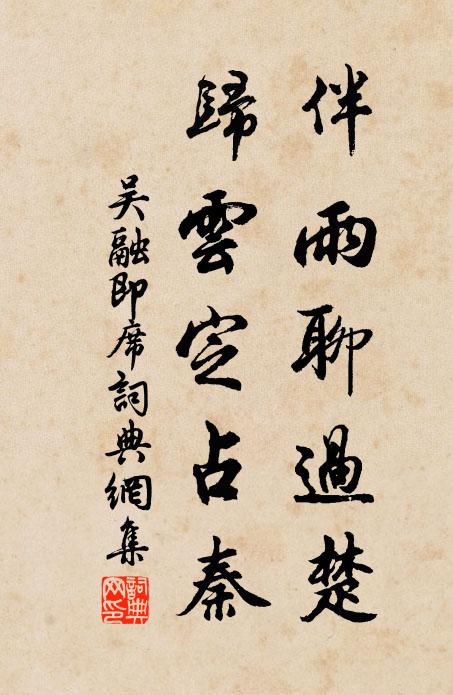 伴雨聊過楚
歸雲定占秦
吴融即席詞典網集
詞典网印